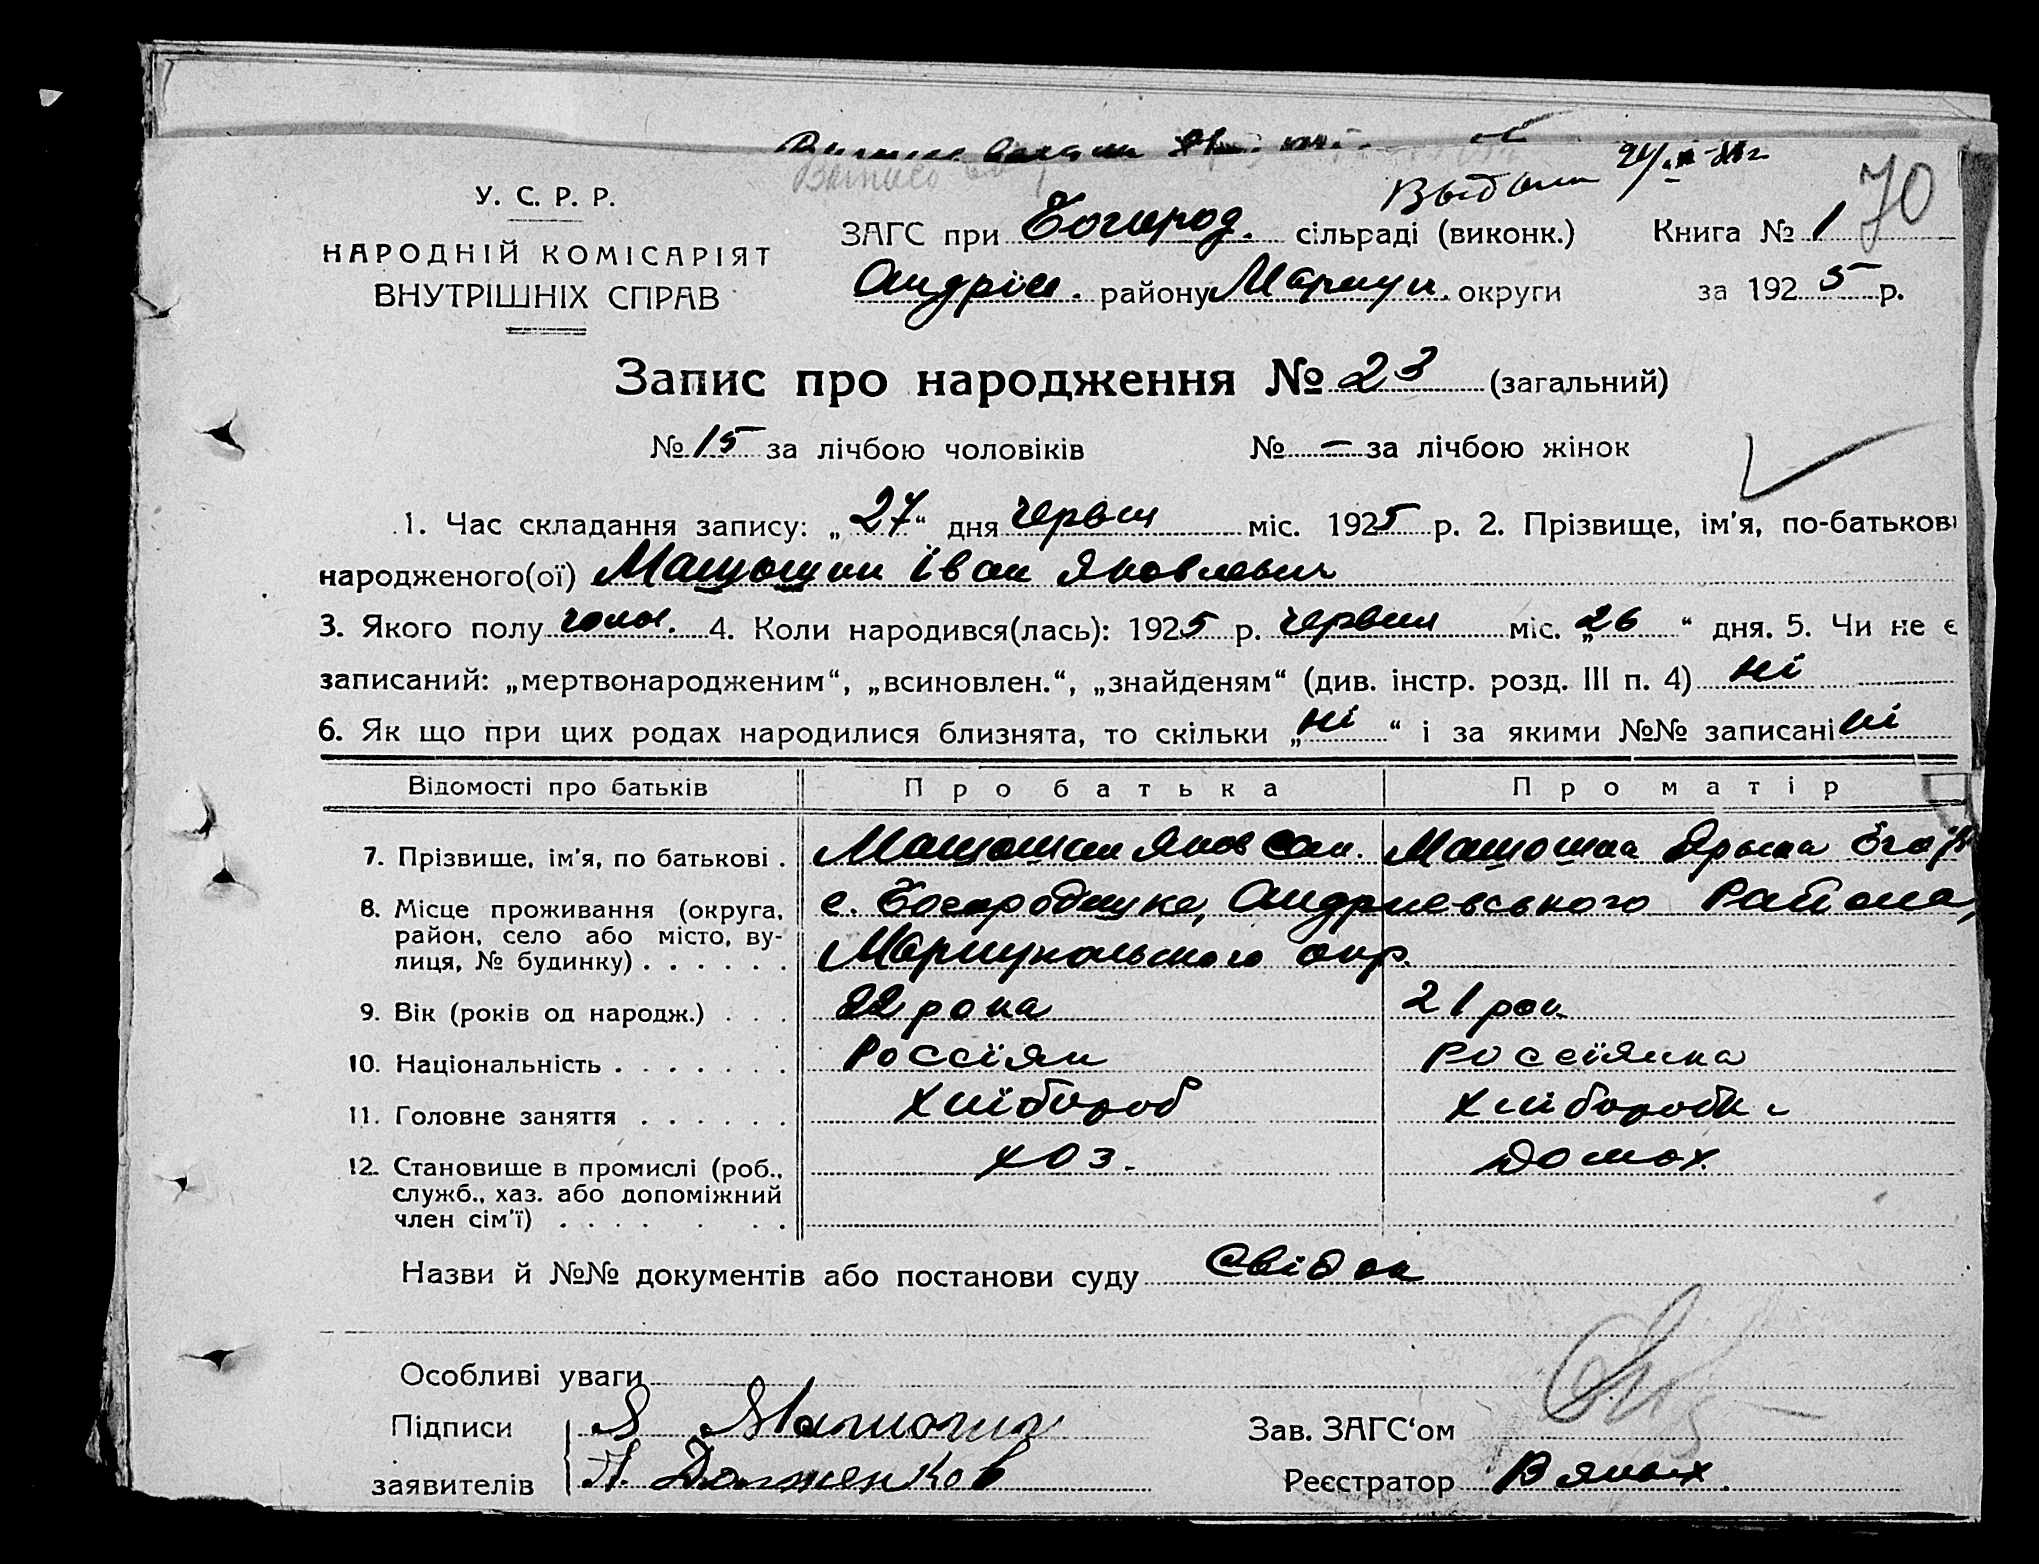 Выдан
70
У. С. Р. Р.
НАРОДНІЙ КОМІСАРІЯТ
ВНУТРІШНІХ СПРАВ
ЗАГС при Богород. сільраді (виконк.) Книга № 1
Андріев. району Мариуп. округи за 1925 р.
Запис про народження № 23 (загальний)
№ 15 за лічбою чоловіків № — за лічбою жінок
1. Час складання запису: „27“ дня червня міс. 1925 р. 2. Прізвище, ім'я, по-батькові
народженого(ої) Іван Яковлевич
3. Якого полу чолов. 4. Коли народився(лась): 1925 р. червня міс. „26“ дня. 5. Чи не є
записаний: „мертвонародженим“, „всиновлен.“, „знайденям“ (див. інстр. розд. III п. 4) ні
6. Як що при цих родах народилися близнята, то скільки „ні“ і за якими №№ записані ні
Відомості про батьків Про батька Про матір
7. Прізвище, ім'я, по батькові . Яков
8. Місце проживання (округа, с. Богородицке, Андриевського Района,
район, село або місто, ву-
лиця, № будинку) . . . . . . Мариупольского окр.
9. Вік (років од народж.) . . . 22 рока 21 рок
10. Національність . . . . . . . Россіян Россіянка
11. Головне заняття . . . . . . Хлібороб Хліборобка
12. Становище в промислі (роб., хоз. домох.
служб., хаз. або допоміжний
член сім'ї) . . . . . . .
Назви й №№ документів або постанови суду Свідок
Особливі уваги
Підписи Я
заявителів П. Долженков
Зав. ЗАГС‘ом
Реєстратор